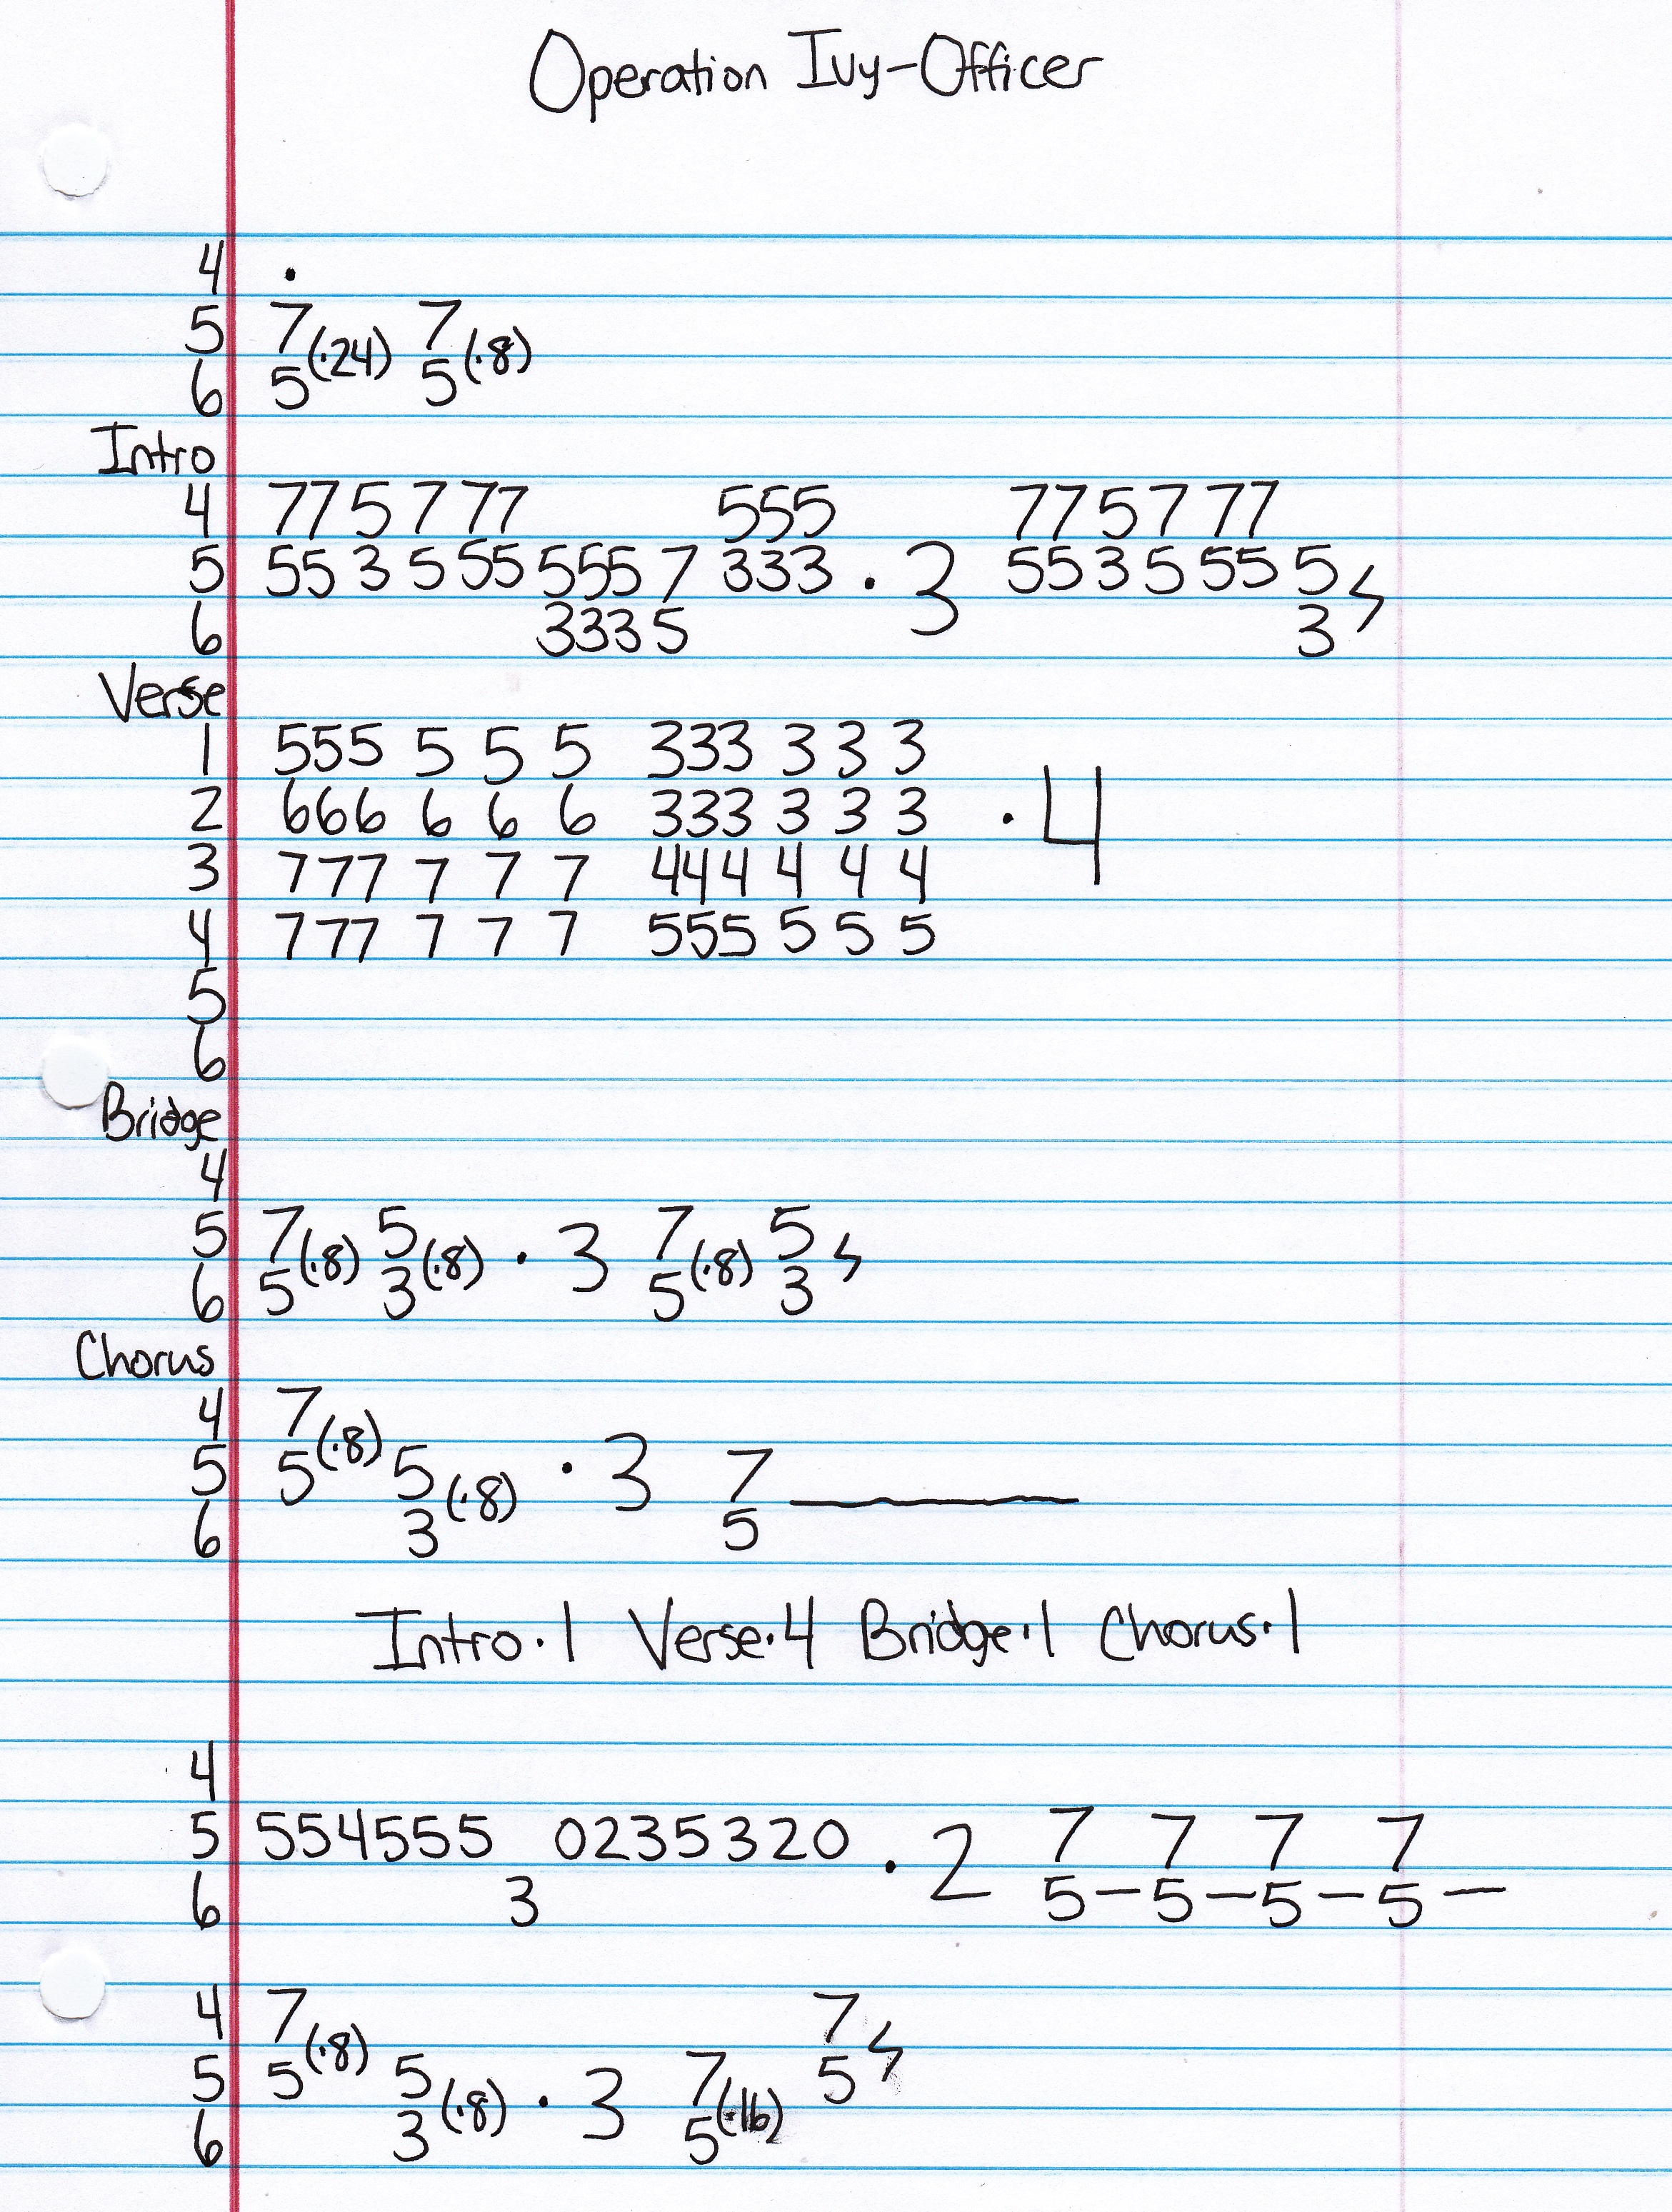 Operation Ivy-Officer
4 .
5 7 (·24) 7 (·8)
6 5 5
Intro
4 77 5 7 77 555 77 5 7 77
5 55 3 5 55 555 7 333 · 3 55 3 5 55 5
6 3335 3
Verse
1 555 5 5 5 333 3 3 3
2 666 6 6 6 333 3 3 3 · 4
3 777 7 7 7 444 4 4 4
4 777 7 7 7 555 5 5 5
5
6
Bridge
4
5 7 (·8) 5 (·8) · 3 7 (·8) 5
6 5 3 5 3
Chorus
4 7 (·8)
5 5 5 (·8) · 3 7
6 3 5
Intro·1 Verse·4 Bridge·1 Chorus·1
4
5 554555 0235320 · 2 7 7 7 7
6 3 5—5—5—5—
4 7 (·8) 7
5 5 5 (·8) · 3 7 (·16) 5
6 3 5